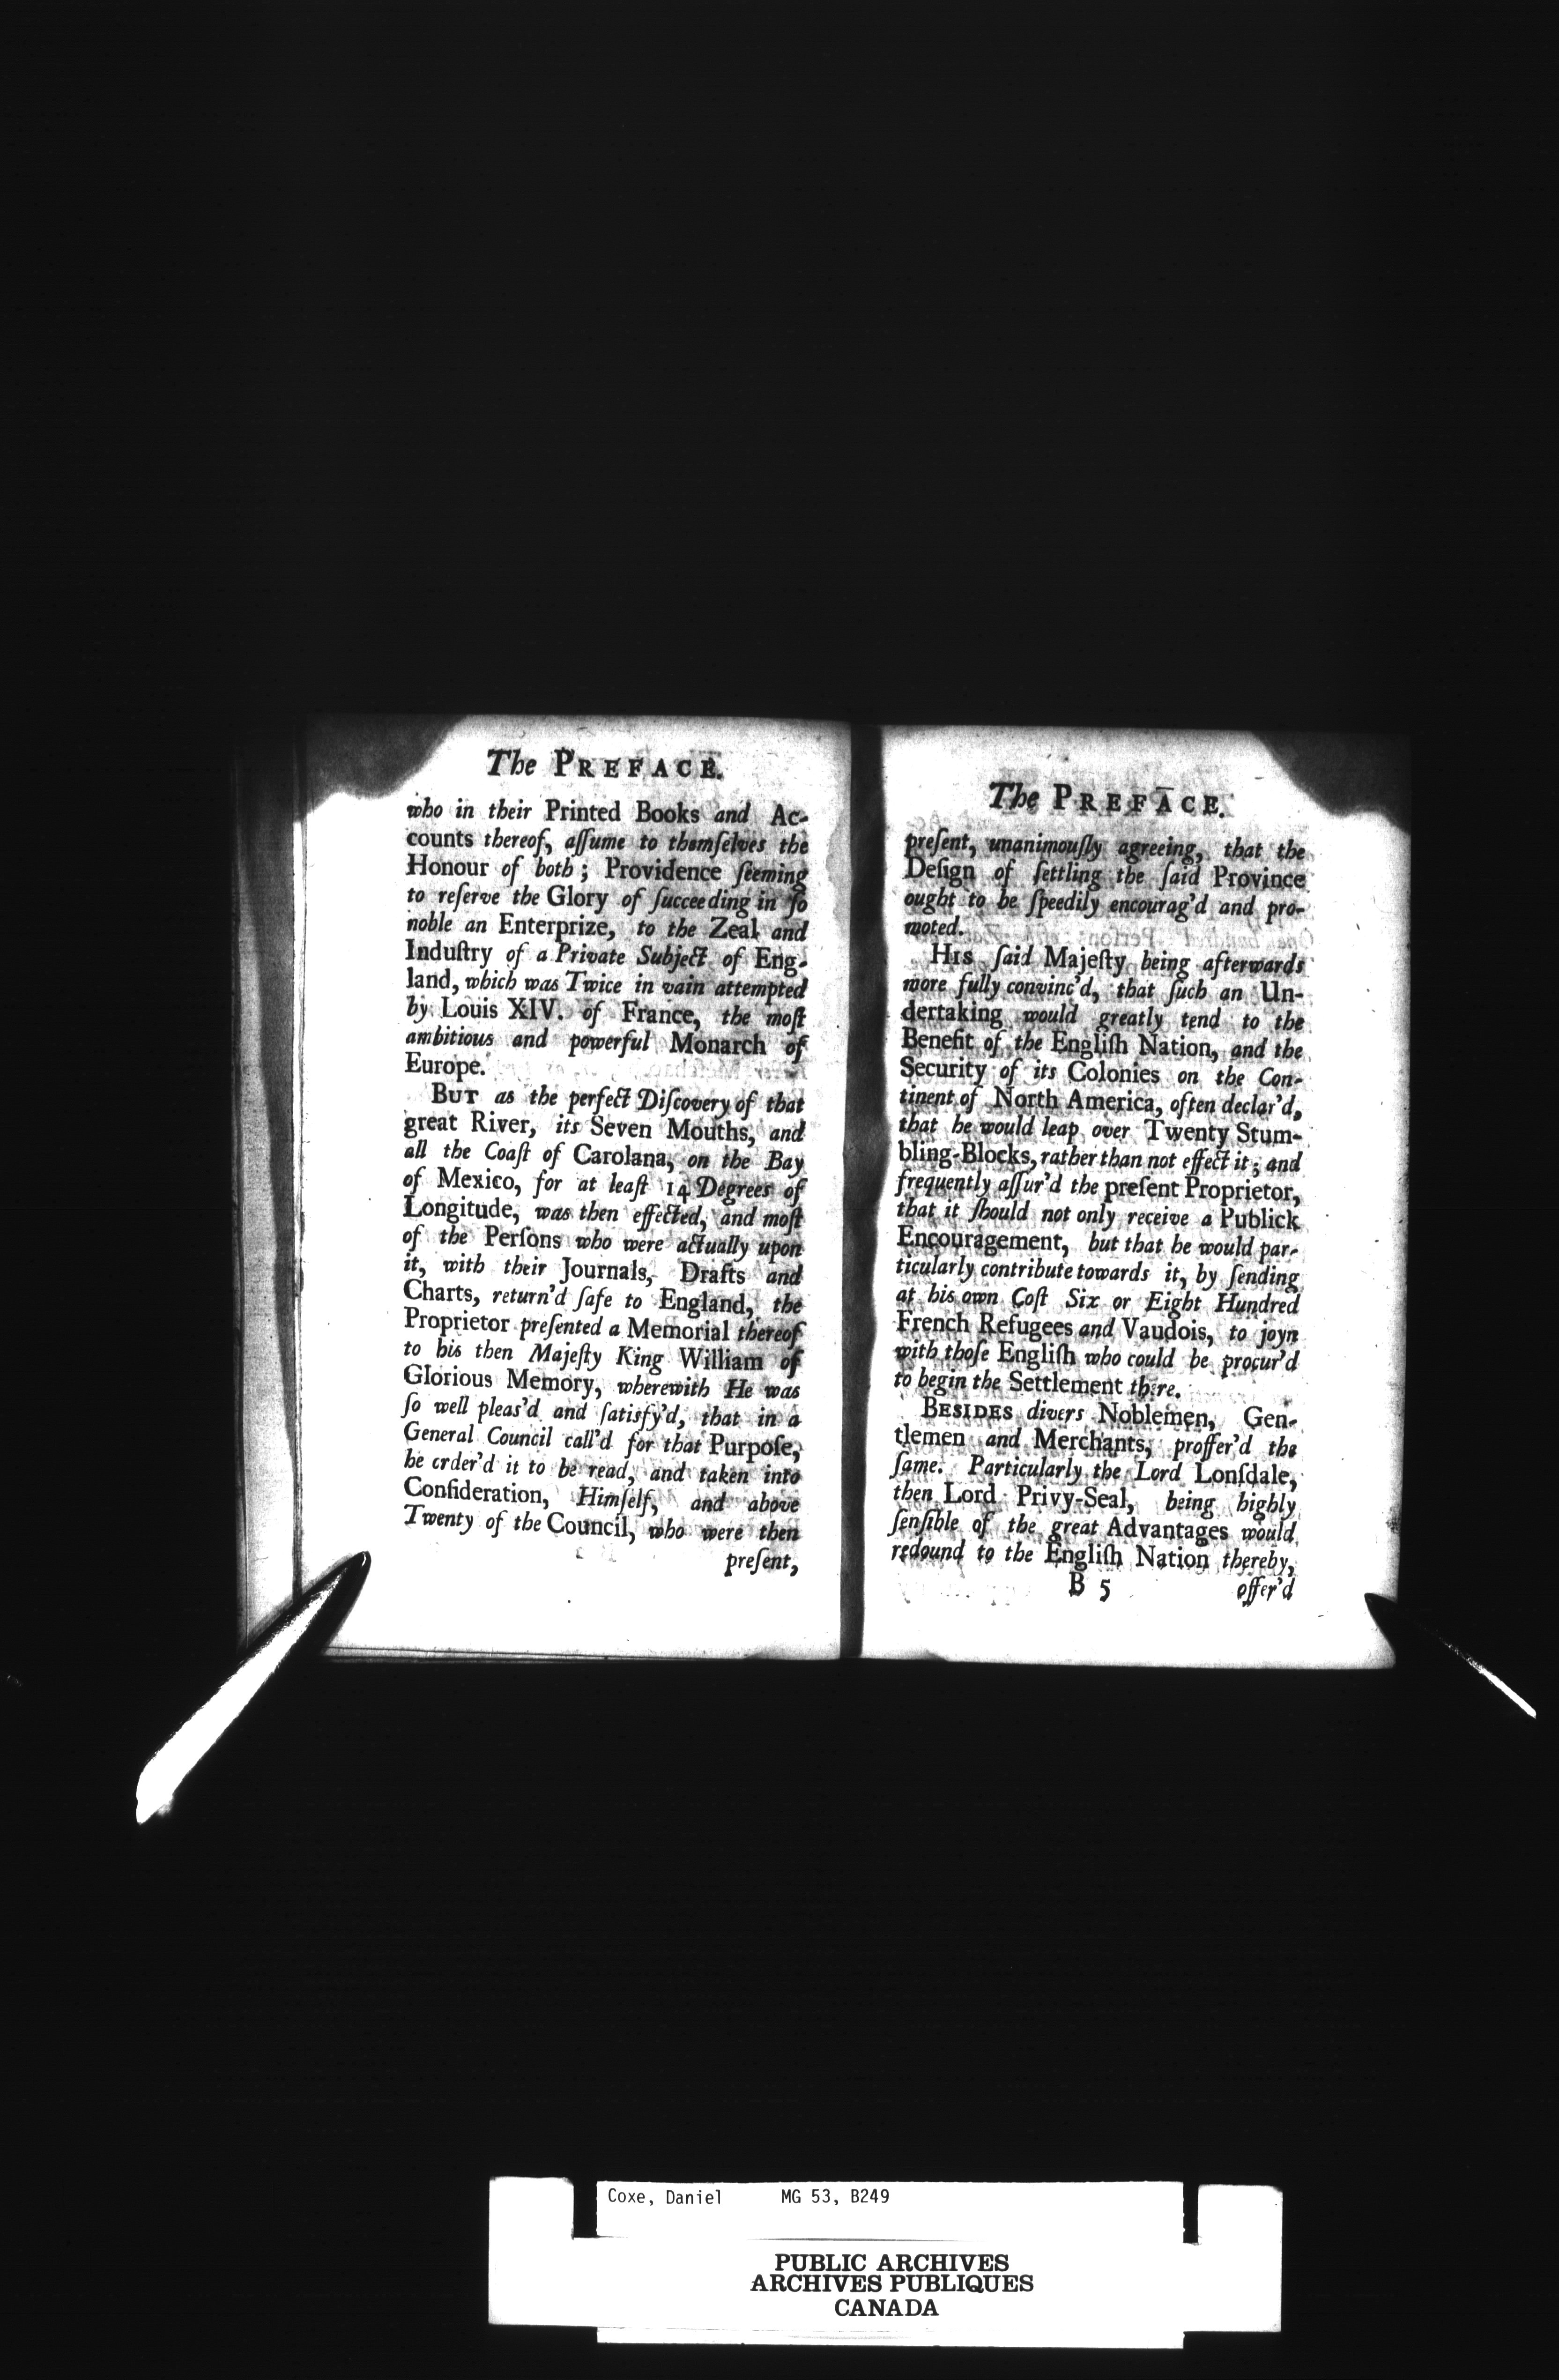 The PREFACE.
who in their Printed Books and Ac-
counts thereof, aſſume to themſelves the
Honour of both; Providence ſeeming
to reſerve the Glory of ſucceeding in ſo
noble an Enterprize, to the Zeal and
Induſtry of a Private Subject of Eng-
land, which was Twice in vain attempted
by Louis XIV. of France, the moſt
ambitious and powerful Monarch of
Europe.
BUT as the perfect Diſcovery of that
great River, its Seven Mouths, and
all the Coaſt of Carolana, on the Bay
of Mexico, for at leaſt 14 Degrees of
Longitude, was then effected, and moſt
of the Perſons who were actually upon
it, with their Journals, Drafts and
Charts, return'd ſafe to England, the
Proprietor preſented a Memorial thereof
to his then Majeſty King William of
Glorious Memory, wherewith He was
ſo well pleas'd and ſatisfy'd, that in a
General Council call'd for that Purpoſe,
he order'd it to be read, and taken into
Conſideration, Himſelf, and above
Twenty of the Council, who were then
preſent,
The PREFACE.
preſent, unanimouſly agreeing, that the
Deſign of ſettling the ſaid Province
ought to be ſpeedily encourag'd and pro-
moted.
HIS ſaid Majeſty being afterwards
more fully convinc'd, that ſuch an Un-
dertaking would greatly tend to the
Benefit of the Engliſh Nation, and the
Security of its Colonies on the Con-
tinent of North America, often declar'd,
that he would leap over Twenty Stum-
bling-Blocks, rather than not effect it; and
frequently aſſur'd the preſent Proprietor,
that it ſhould not only receive a Publick
Encouragement, but that he would par-
ticularly contribute towards it, by ſending
at his own Coſt Six or Eight Hundred
French Refugees and Vaudois, to joyn
with thoſe Engliſh who could be procur'd
to begin the Settlement there.
BESIDES divers Noblemen, Gen-
tlemen and Merchants, proffer'd the
ſame. Particularly the Lord Lonſdale,
then Lord Privy-Seal, being highly
ſenſible of the great Advantages would
redound to the Engliſh Nation thereby,
B 5 offer'd
Coxe, Daniel MG 53, B249
PUBLIC ARCHIVES
ARCHIVES PUBLIQUES
CANADA